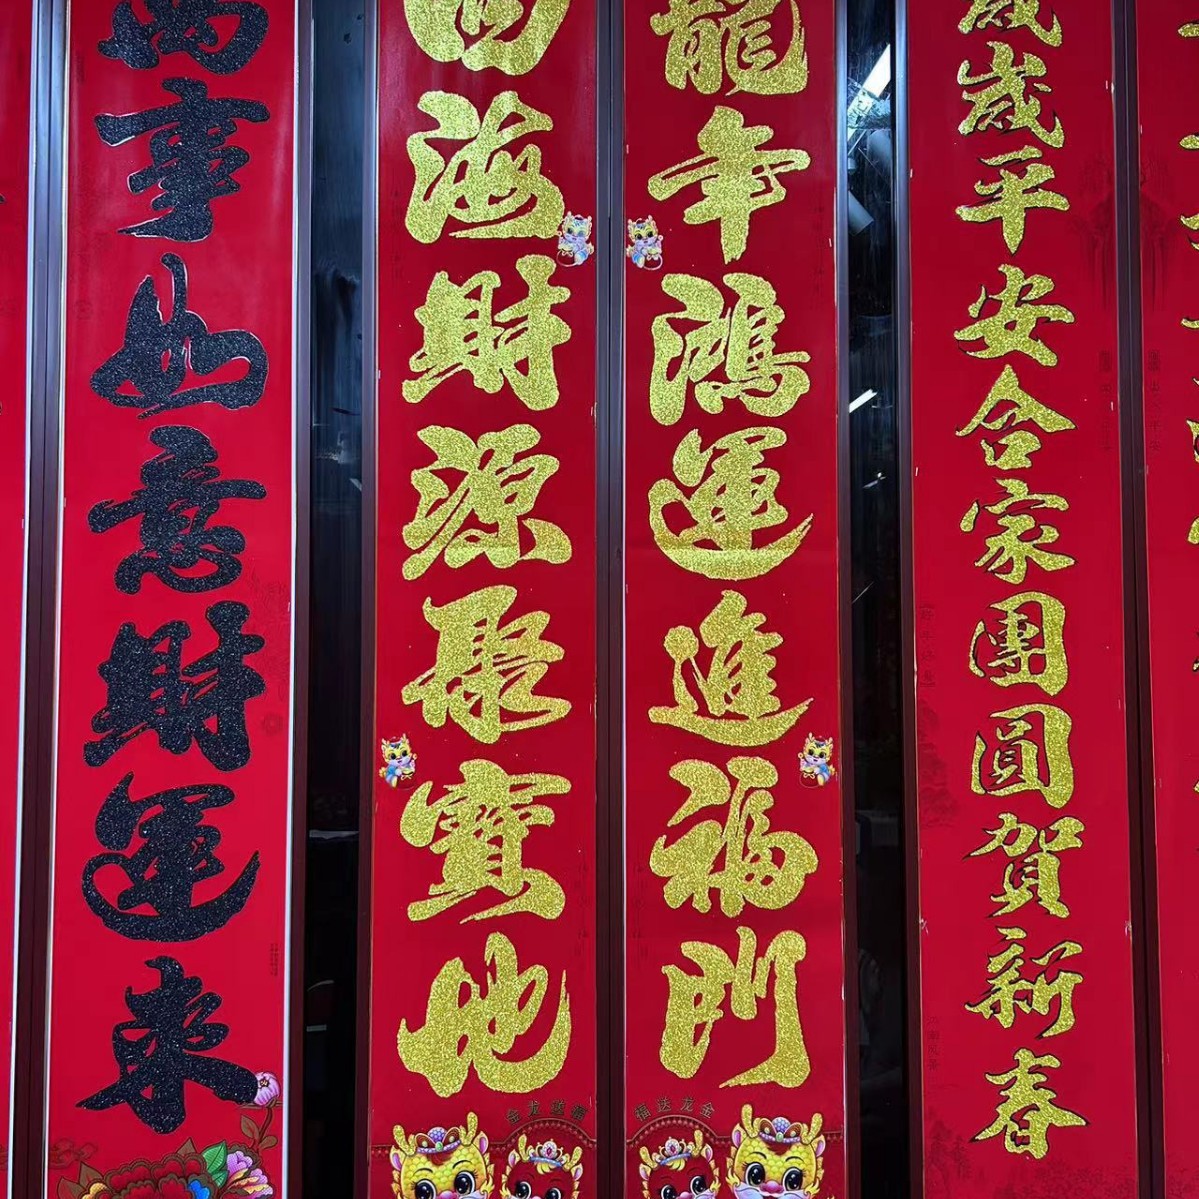 萬事如意財運來
四海財源聚寶地
龍年鴻運進福門
歲歲平安合家團圓賀新春
福达龙金